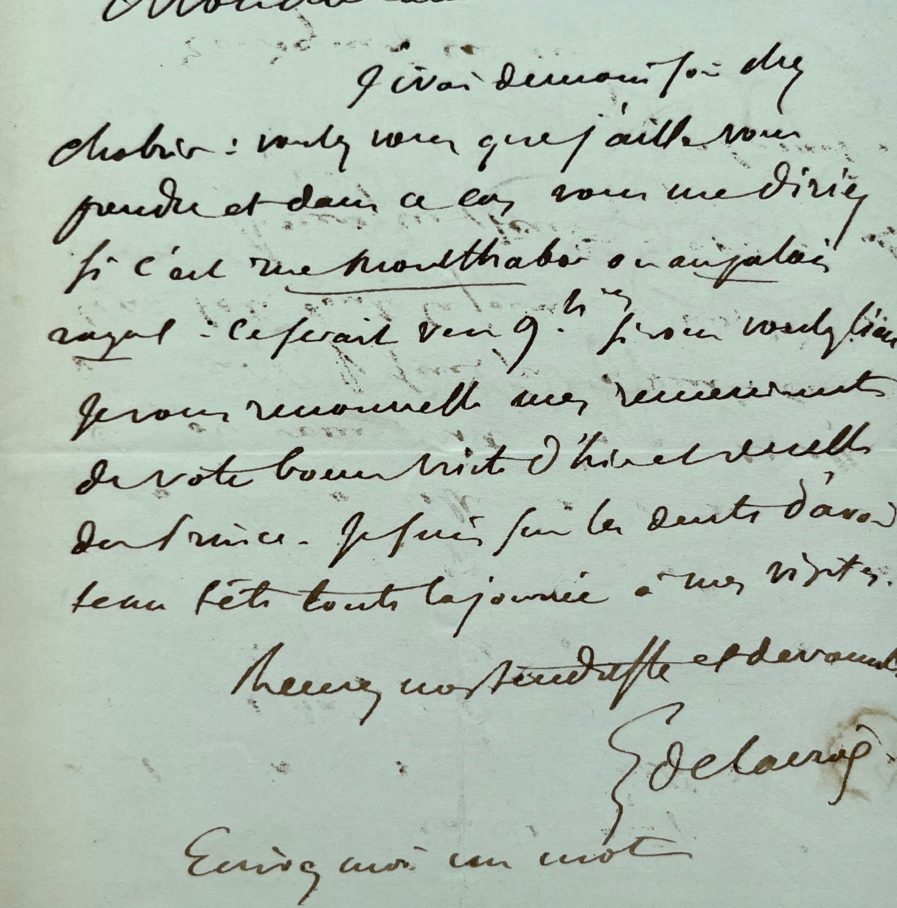 J'irai demain soir chez
Chabrier : voulez vous que j'aille vous
prendre et dans ce cas vous me diriez
si c'est rue Montthabor ou au palais
royal : ce serait vers 9 h res si vous voulez bien
Je vous renouvelle mes remerciments
de votre bonne visite d'hier et de celle
du Prince. Je suis sur les dents d'avoir
tenu tête toute la journée à mes visites.
Recevez mes tendresses et dévouement
E Delacroix
Envoyez moi un mot